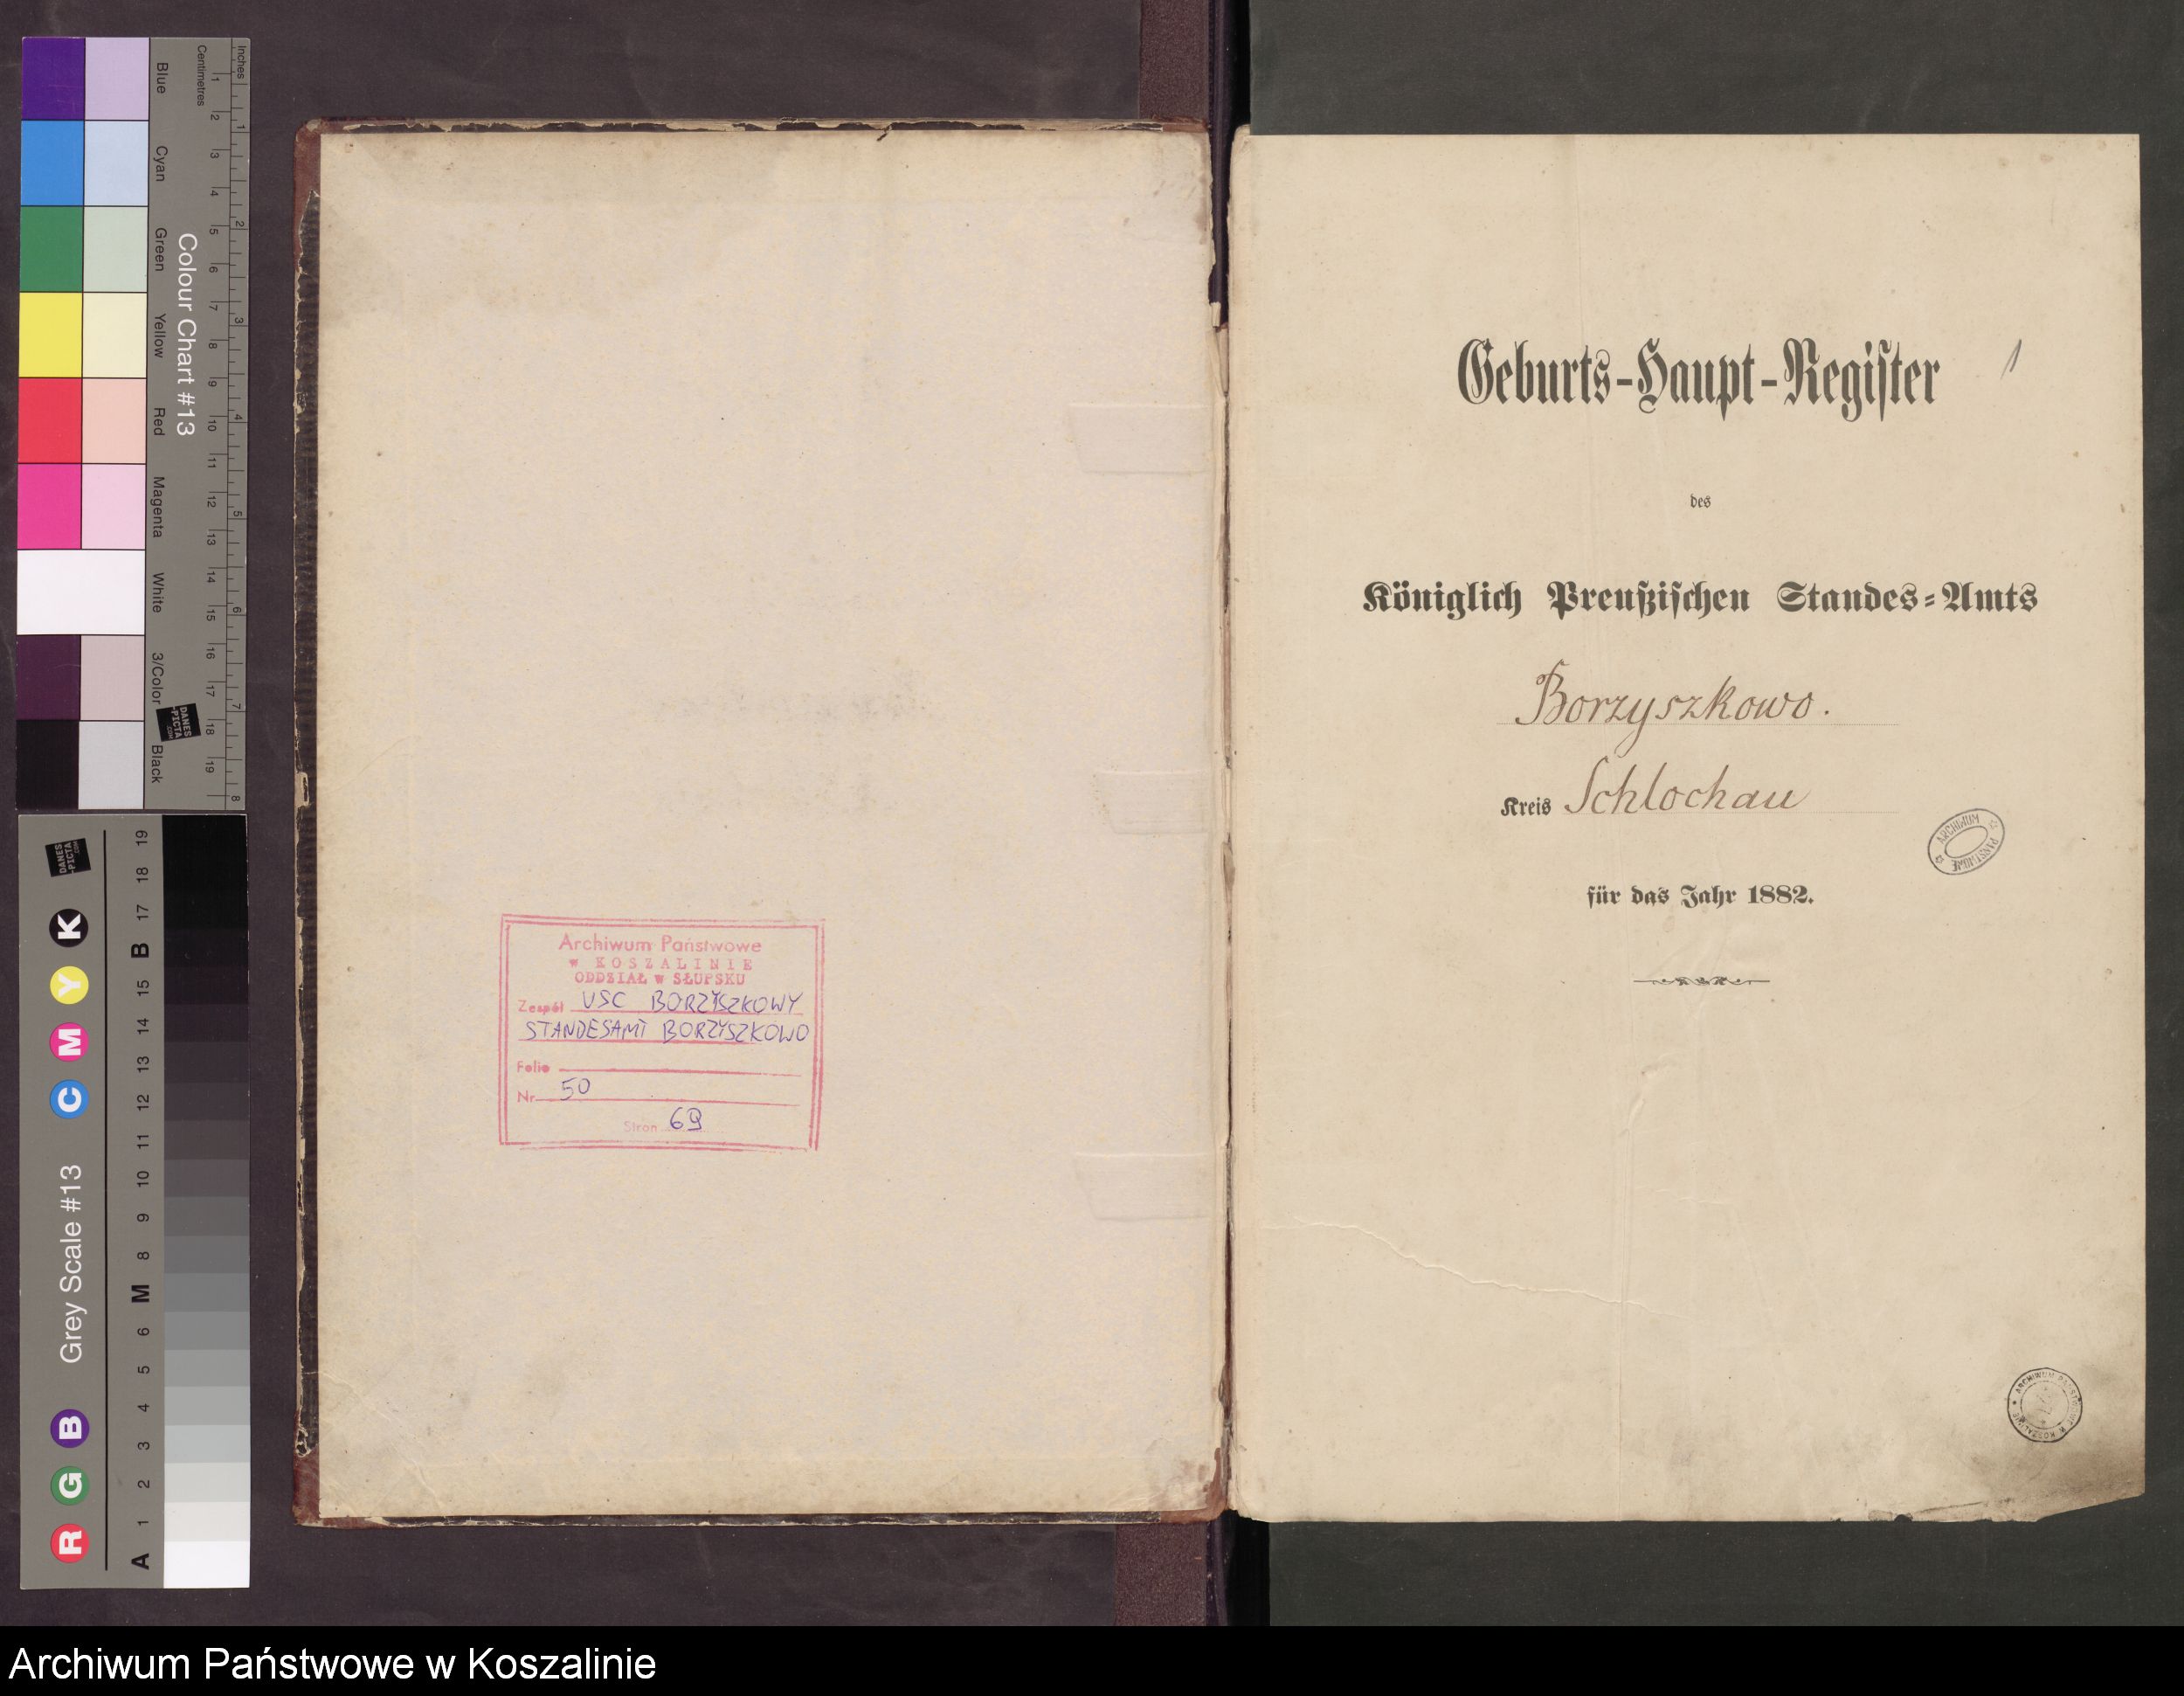 Inches
Centimetres
1 2 3 4 5 6 7 8 9 10 11 12 13 14 15 16 17 18 19
1 2 3 4 5 6 7 8
Colour Chart #13
Blue
Cyan
Green
Yellow
Red
Magenta
White
3/Color
Black
DANES
-PICTA
.COM
Grey Scale #13
R G B C M Y K
DANES
-PICTA
.COM
A 1 2 3 4 5 6 M 8 9 10 11 12 13 14 15 B 17 18 19
Archiwum Państwowe
w KOSZALINIE
ODDZIAŁ w SŁUPSKU
Zespół USC BORZYSZKOWY
STANDESAMT BORZYSZKOWO
Folio
Nr. 50
Stron 69
Geburts-Haupt-Register
1
des
Königlich Preußischen Standes-Amts
Borzyszkowo.
Kreis Schlochau
ARCHIWUM PAŃSTWOWE
für das Jahr 1882.
ARCHIWUM PAŃSTWOWE W KOSZALINIE
Archiwum Państwowe w Koszalinie